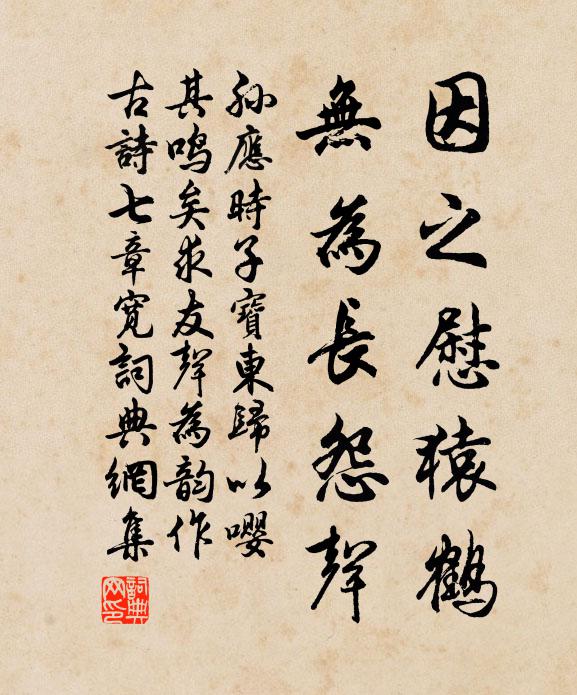 因之慰猿鶴
無為長怨聲
孫應時子寶東歸以嚶
其鳴矣求友聲為韵作
古詩七章寬詞典網集
詞典
网印